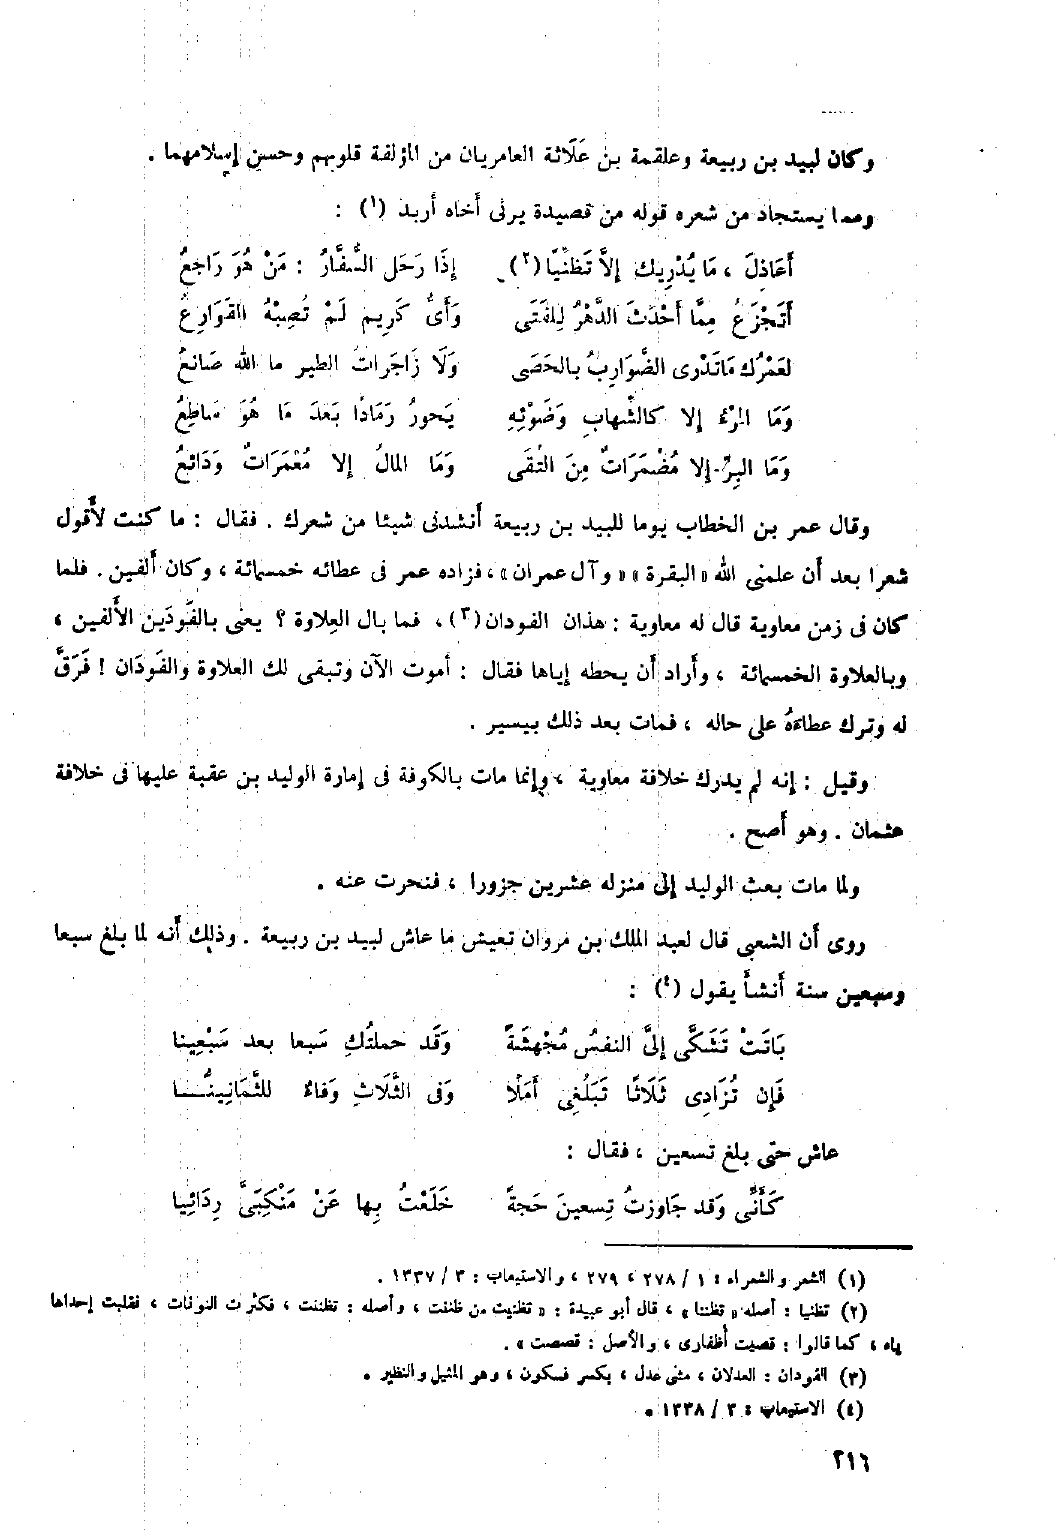 وكان لبيد بن ربيعة وعلقمة بن عَلَاثة العامريان من المؤلفة قلوبهم وحسن إسلامهما .
ومما يستجاد من شعره قوله من قصيدة يرثى أخاه أربد (١) :
أَعَاذِلَ ، مَا يُدْرِيك إِلاَّ تَظَنِّيًا (٢) إِذَا رَحَل السُّفَّارُ : مَنْ هُوَ رَاجِعُ
أَتَجْزَعُ مِمَّا أَحْدَثَ الدَّهْرُ لِلفَتَى وَأَىُّ كَرِيم لَمْ تُصِبْهُ القَوَارِعُ
لَعَمْرُك مَاتَدْرى الضَّوَارِبُ بالحَصَى وَلَا زَاجَرَاتُ الطير ما الله صَانعُ
وَمَا المرْءُ إلا كَالشِّهابِ وَضَوْئِهِ يَحورُ رَمَادًا بَعدَ مَا هُوَ سَاطِعُ
وَمَا البِرُّ إلا مُضْمَرَاتٌ مِنَ التُقَى وَمَا المالُ إلا مُعْمَرَاتٌ وَدَائعُ
وقال عمر بن الخطاب يوما للبيد بن ربيعة أَنشدنى شيئا من شعرك . فقال : ما كنت لأَقول
شعرا بعد أَن علمنى الله « البقرة » « وآل عمران » ، فزاده عمر فى عطائه خمسمائة ، وكان أَلفين . فلما
كان فى زمن معاوية قال له معاوية : هذان الفودان (٣) ، فما بال العِلاوة ؟ يعنى بالفَّودَين الأَلفين ،
وبالعلاوة الخمسمائة ، وأَراد أَن يحطه إياها فقال : أموت الآن وتبقى لك العلاوة والفَودَان ! فَرَقَّ
له وترك عطاءَهُ على حاله ، فمات بعد ذلك بيسير .
وقيل : إنه لم يدرك خلافة معاوية ، وإنما مات بالكوفة فى إمارة الوليد بن عقبة عليها فى خلافة
عثمان . وهو أَصح .
ولما مات بعث الوليد إلى منزله عشرين جزورا ، فنحرت عنه .
روى أَن الشعبى قال لعبد الملك بن مروان تعيش ما عاش لبيد بن ربيعة . وذلك أَنه لما بلغ سبعا
وسبعين سنة أَنشأَ يقول (٤) :
بَاتَتْ تَشَكَّى إِلىَّ النفسُ مُجْهشَةً وَقَد حملتُكِ سَبعا بعد سَبْعِينا
فَإن تُزَادِى ثَلَاثًا تَبَلُغِى أَمَلًا وَفى الثَّلَاثِ وَفاءٌ للثَّمَانِينُـــا
عاش حتى بلغ تسعين ، فقال :
كَأَنِّى وَقد جَاوزتُ تِسعينَ حَجةً خَلَعْتُ بِها عَنْ مَنْكِبَىَّ رِدَائِيا
(١) الشعر والشعراء : ١ / ٢٧٨ ، ٢٧٩ ، والاستيعاب : ٣ / ١٣٣٧ .
(٢) تظنيا : أصله « تظننا » ، قال أبو عبيدة : « تظنيت من ظننت ، وأصله : تظننت ، فكثرت النونات ، فقلبت إحداها
ياء ، كما قالوا : قصيت أظفارى ، والأصل : قصصت » .
(٣) الفودان : العدلان ، مثنى عدل ، بكسر فسكون ، وهو المثيل والنظير .
(٤) الاستيعاب : ٣ / ١٣٣٨ .
٢١٦